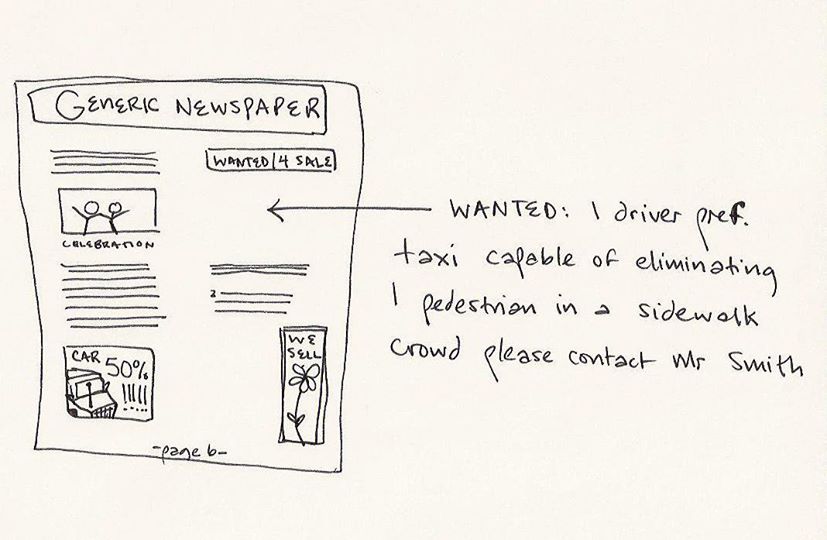 GENERIC NEWSPAPER
WANTED/4 SALE
CELEBRATION
CAR 50%
WE
SELL
-page 6-
WANTED: 1 driver pref.
taxi capable of eliminating
1 pedestrian in a sidewalk
crowd please contact Mr Smith